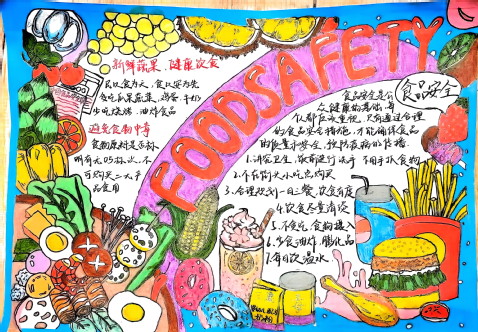 FOOD SAFETY
新鲜蔬果、健康饮食
民以食为天,食以安为先
多吃瓜果蔬菜、鸡蛋、牛奶
少吃烧烤、油炸食品
避免食物中毒
食物原料是否标
明有无防腐
不
品食用
食品安全
食品安全是公
众健康的基础,每
个人都应该重视,只有通过合理
的食品安全措施,才能确保食品
的质量和安全,预防疾病的传播.
1.讲究卫生、饭前便后洗手 不用手抓食物
2.不在街头小吃点购买
3.合理规划一日三餐,饮食有度
4.饮食尽量清淡
5.不乱吃食物
6.少食油炸、膨化品
7.每日饮温水